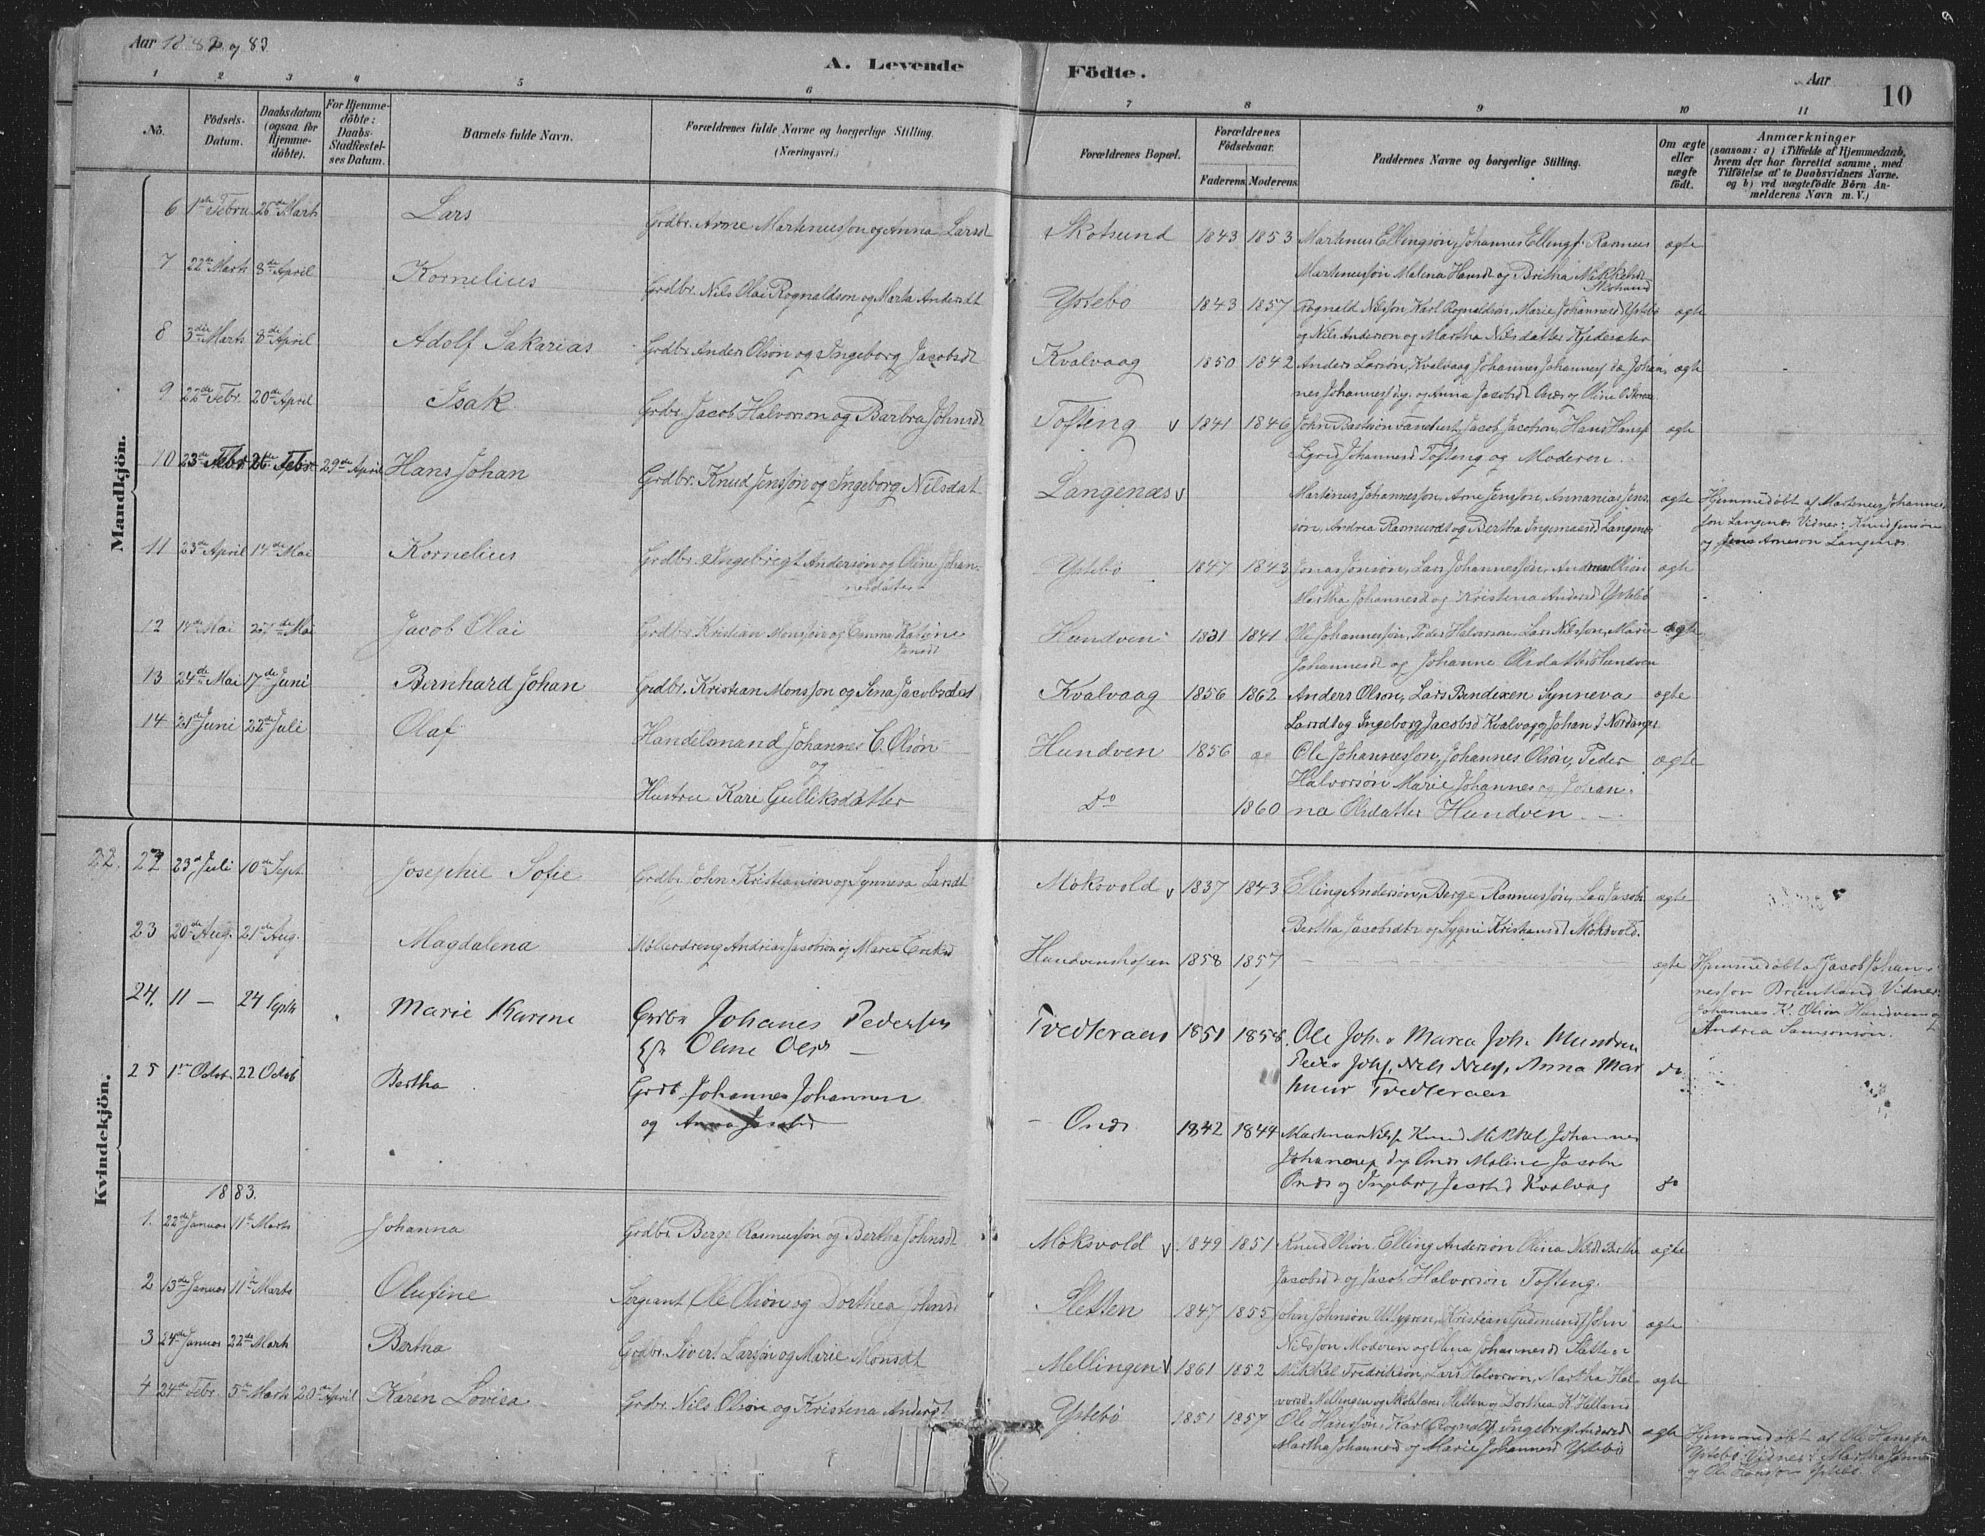 Aar 1882 og 83
A. Levende Födte.
Aar
10
1 2 3 4 5 6 7 8 9 10 11
No.
Födsels-Datum.
Daabsdatum (ogsaa for Hjemme-döbte).
For Hjemme-döbte: Daabs-Stadfæstel-ses Datum.
Barnets fulde Navn.
Forældrenes fulde Navne og borgerlige Stilling. (Næringsvei.)
Forældrenes Bopæl.
Forældrenes Födselsaar.
Faderens. Moderens.
Faddernes Navne og borgerlige Stilling.
Om ægte eller uægte födt.
Anmærkninger
(saasom: a) i Tilfælde af Hjemmedaab, hvem der har forrettet samme, med Tilföielse af to Daabsvidners Navne. og b) ved uægtefödte Börn An-melderens Navn m. V.)
Mandkjön.
6 1ste Febru 26de Marts Lars Grdbr. Arne Martinussøn og Anna Larsd Skotsund 1843 1853 Martinus Ellingsøn, Johannes Ellings. Rasmus ægte
Martinussøn Malena Hansd og Britha Mikkelsd
7 22de Marts 8de April Kornelius Grdbr. Nils Olai Rognaldsøn og Marta Andersdt Ystebø 1843 1857 Rognald Nilsson Karl Rognaldsøn, Marie Johannesd Ystebø ægte
og Nils Andersøn og Martha Nilsdatter
8 3die Marts 8de April Adolf Sakarias Grdbr. Anders Olsøn og Ingeborg Jacobsdt Kvalvaag 1850 1842 Anders Larsøn, Kvalvaag Johannes Johannes ægte
og Anna Jacobsdt Onds og Oline
9 22de Febr. 20de April Isak Grdbr. Jacob Halvorsøn og Barbra Johnsdt Tofting 1841 1846 Jacob Jacobsøn, Hans Hansf ægte
Johannesd Tofting og Moderen.
10 23de Febr 26de Febr 29de April Hans Johan Grdbr. Knud Jenssøn og Ingeborg Nilsdat Langenæs Martinus Johannessøn, Arne Jenssøn, Annanias Jens ægte Hjemmedøbt af Martinus Johannes
søn, Andrea Rasmusdt og Bertha Ingemarsd Langenæs søn Langenæs Vidner: Knud Jensøn
og Jens Arneson Langenæs.
11 23de April 14de Mai Kornelius Grdbr. Ingebrigt Andersøn og Oline Johan- Ystebø 1847 1843 Jonas Jonsøn, Lars Johannessøn, Andreas Olsøn ægte
nesdatter Martha Johannesd og Kristena Andersd Ystebø
12 14de Mai 27de Mai Jacob Olai Grdbr Kristian Monssøn og Emma Katrine Hundven 1831 1841 Ole Johannessøn, Peder Halvorsøn, Lars Nilssøn, Marie ægte
Johannesd og Johanne Olsdatter Hundven
13 24de Mai 17de Juni Bernhard Johan Grdbr. Kristian Monssøn og Sena Jacobsdat Kvalvaag 1856 1862 Anders Olsøn, Lars Bendixen Synneva ægte
Larsdt og Ingeborg Jacobsd Kvalvaag
14 21de Juni 22de Juli Olaf Handelsmand Johannes C. Olsøn Hundven 1856 Ole Johannessøn, Johannes Olsøn, Peder ægte
og Halvorsøn Marie Johannes og Johan
Hustru Kari Gulliksdatter Do 1860 na Olsdatter Hundven.
Kvindekjön.
22. 22 23de Juli 10de Sept Josephie Sofie Grdbr John Kristiansøn og Synneva Larsdt Moksvold 1837 1843 Elling Andersøn, Berge Rasmussøn, Lars Jacobs ægte
Bertha Jacobsdtr og Sygni Kristiansd Moksvold.
23 20de Aug. 21de Aug. Magdalena Møllerdreng Andrias Jacobsøn og Marie Eriksd Hundvenshopen 1858 1857 ægte Hjemmedøbt a Jacob Johan-
nessøn Vidner:
Johannes K. Olsøn Hundven og
Andrea Samsonsøn.
24. 11 - 24 Septr Marie Karine Grdbr Johanes Pedersen Tvedteraas 1851 1858 Ole Joh. Maria Joh. Hundven
Oline Olsd Peder Johs, Nels Nelss, Anna Mar do
Tvedteraas
25 1ste Octob. 22 Octob Bertha Grdb. Johannes Johannesse
og Anna Jacobsd Onds 1842 1844 Martinus Nilss Knud Mikkel Johannes
Onds Maline Jacobs
Onds og Ingeborg Jacobsd Kvalvag do
1883.
1. 22de Januar 11te Marts Johanna Grdbr Berge Rasmussøn og Bertha Johnsdt Moksvold 1849 1851 Knud Olsøn, Elling Andersøn Olina Nilsd Bertha ægte
Jacobsd og Jacob Halvorsøn Tofting.
2 13de Januar 11te Marts Olufine Sergeant Ole Olsøn og Dorthea Johnsd Sletten 1847 1855 John Johnsøn Kristian Gudmunds John ægte
Nilssøn Moderen og Elena Johannesd Sletten
3 24de Januar 22de Marts Bertha Grdbr. Sivert Larsøn og Marie Monsdt Mellingen 1861 1852 Mikkel Fredriksøn, Lars Halvorsøn, Martha Hal ægte
vorsd Mellingen og Sletten og Dorthea K Helland
4 24de Febr. 5te Marts 20de April Karen Lovisa Grdbr. Nils Olsøn og Kristena Andersdt Ystebø 1851 1857 Ole Hanssøn, Karl Rognalds Ingebrigt Anderss ægte Hjemmedøbt af Ole Hanssøn
Martha Johannesd og Marie Johannesd Ystebø Ystebø Vidner: Martha Johannes
og Ole Hanssøn Ystebø